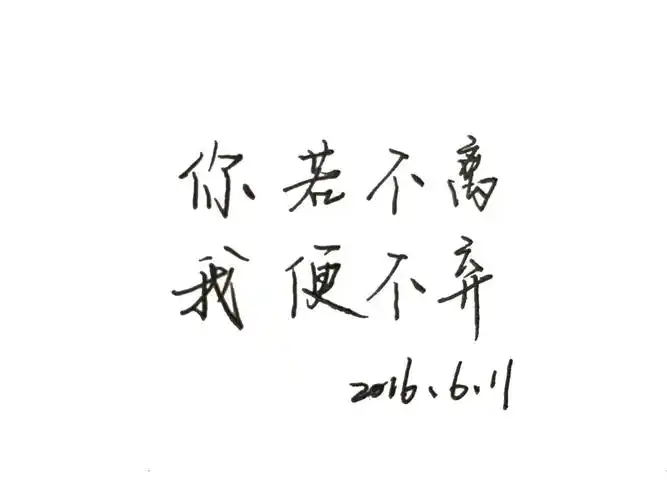 你若不离
我便不弃
2016.6.11